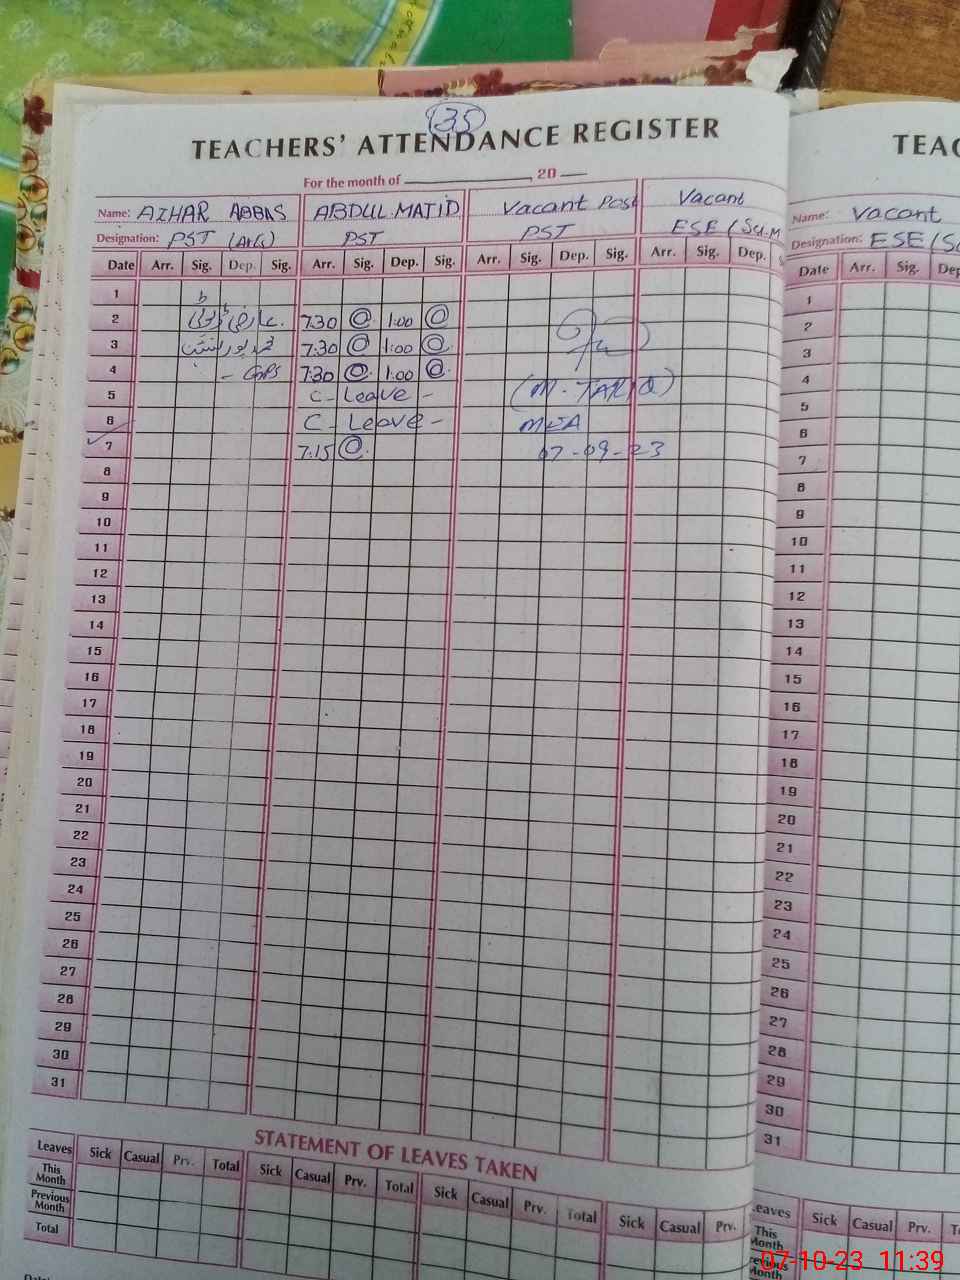 35
TEACHERS' ATTENDANCE REGISTER
For the month of 20
Name: AZHAR ABBAS ABDUL MAJID Vacant Post Vacant
Designation: PST (Arts) PST PST ESE (Sci-M
Date Arr. Sig. Dep. Sig. Arr. Sig. Dep. Sig. Arr. Sig. Dep. Sig. Arr. Sig. Dep. S
1
2 عارضی ڈیوٹی 7:30 1:00
3 7:30 1:00
4 - GPS 7:30 1:00 (M. TARIQ)
5 C - Leave -
6 C - Leave - MEA
7 7:15 07-09-23
8
9
10
11
12
13
14
15
16
17
18
19
20
21
22
23
24
25
26
27
28
29
30
31
STATEMENT OF LEAVES TAKEN
Leaves Sick Casual Prv. Total Sick Casual Prv. Total Sick Casual Prv. Total Sick Casual Prv.
This Month
Previous Month
Total
TEAC
Name: Vacant
Designation: ESE (Sc
Date Arr. Sig. Dep
1
2
3
4
5
6
7
8
9
10
11
12
13
14
15
16
17
18
19
20
21
22
23
24
25
26
27
28
29
30
31
eaves Sick Casual Prv. To
This Month
07-10-23 11:39